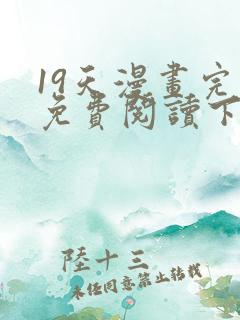 19天漫畫完
免費閱讀下
陸十三
未任同意禁止转载